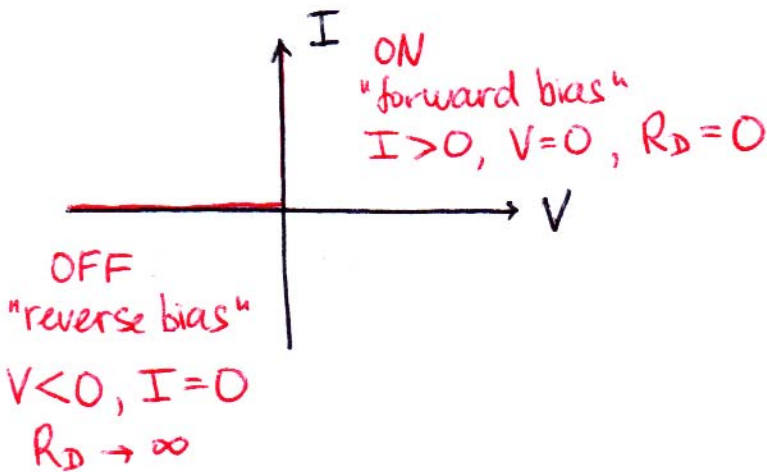 I
ON
"forward bias"
I>0, V=0, R_D=0
V
OFF
"reverse bias"
V<0, I=0
R_D → ∞